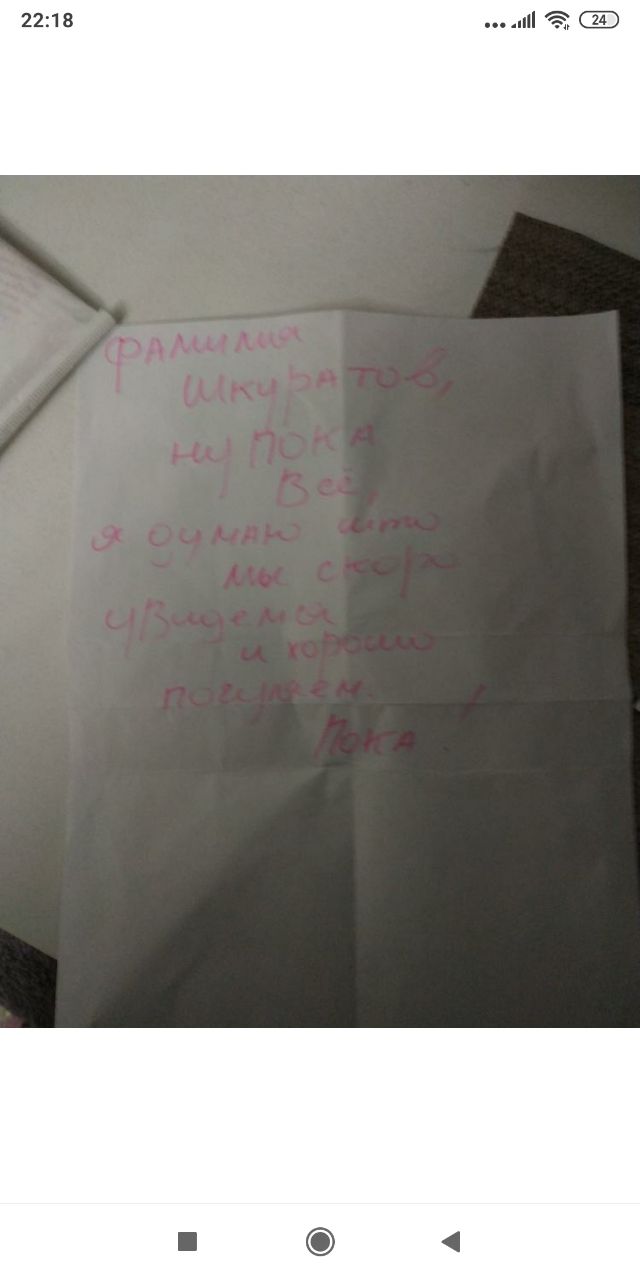 22:18
24
фамилия
Шкуратов,
ну пока
Всё,
я думаю што
мы скоро
увидемся
и хорошо
погуляем.
Пока!